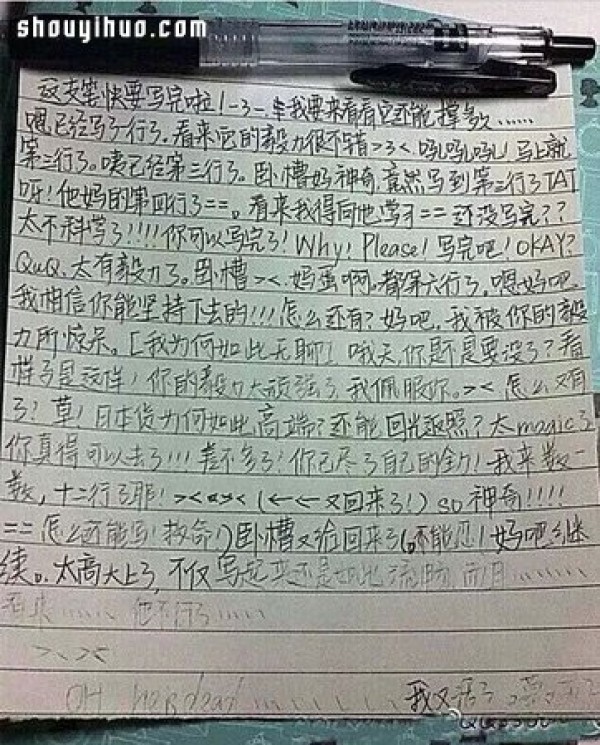 shouyihuo.com
这支笔快要写完啦!-3-.来我要来看看它还能撑多久……
嗯已经写了一行了.看来它的毅力很不错>3<吗吗吗!马上就
第三行了。咦已经第三行了。卧槽好神奇竟然写到第三行了TAT
呀!他妈的第四行了==。看来我得向他学习==还没写完??
太不科学了!!!!你可以写完了!Why!Please!写完吧!OKAY?
QuQ.太有毅力了。卧槽><.妈蛋啊.都第六行了。嗯妈吧.
我相信你能坚持下去的!!!怎么还有?妈吧.我被你的毅
力所惊呆。[我为何如此无聊]哦天,你是不是要没了?看
样子是这样!你的毅力太顽强了,我佩服你。><怎么又有
了?草!日本货为何如此高端?还能回光返照?太magic了
你真得可以去了!!!差不多了!你已尽了自己的全力!我来数一
数,十二行了耶!><«»<(←←又回来了!)so神奇!!!!
==怎么还能写!救命!)卧槽又给回来了(不能忍!妈吧继
续。太高大上了,不仅写起来还是如此流畅,而且……
看来……他不行了……
>、><
OH he is dead………我又活了